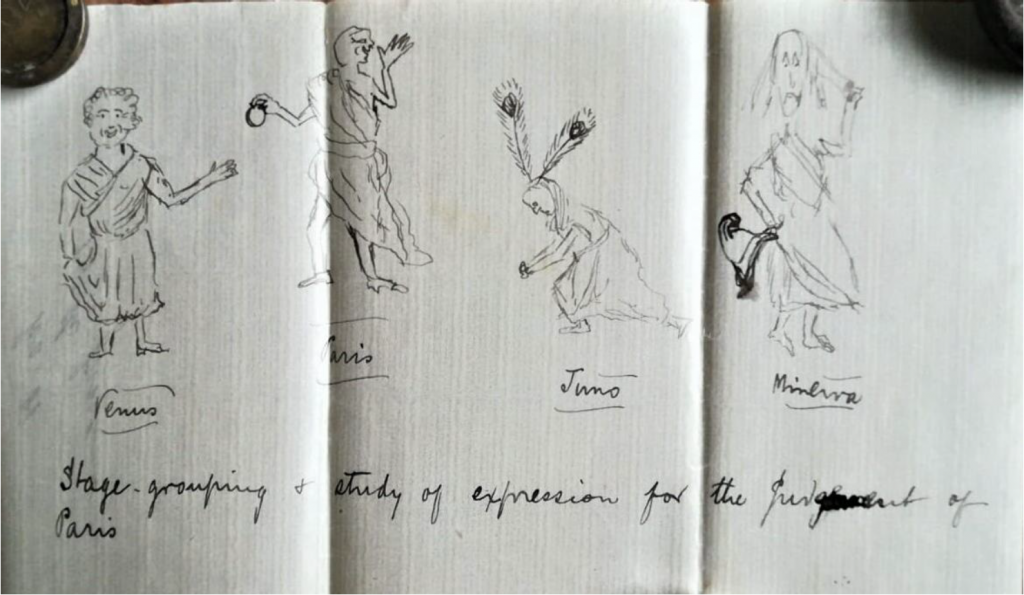 Venus
Paris
Juno
Minerva
Stage-grouping & study of expression for the Judgment of
Paris